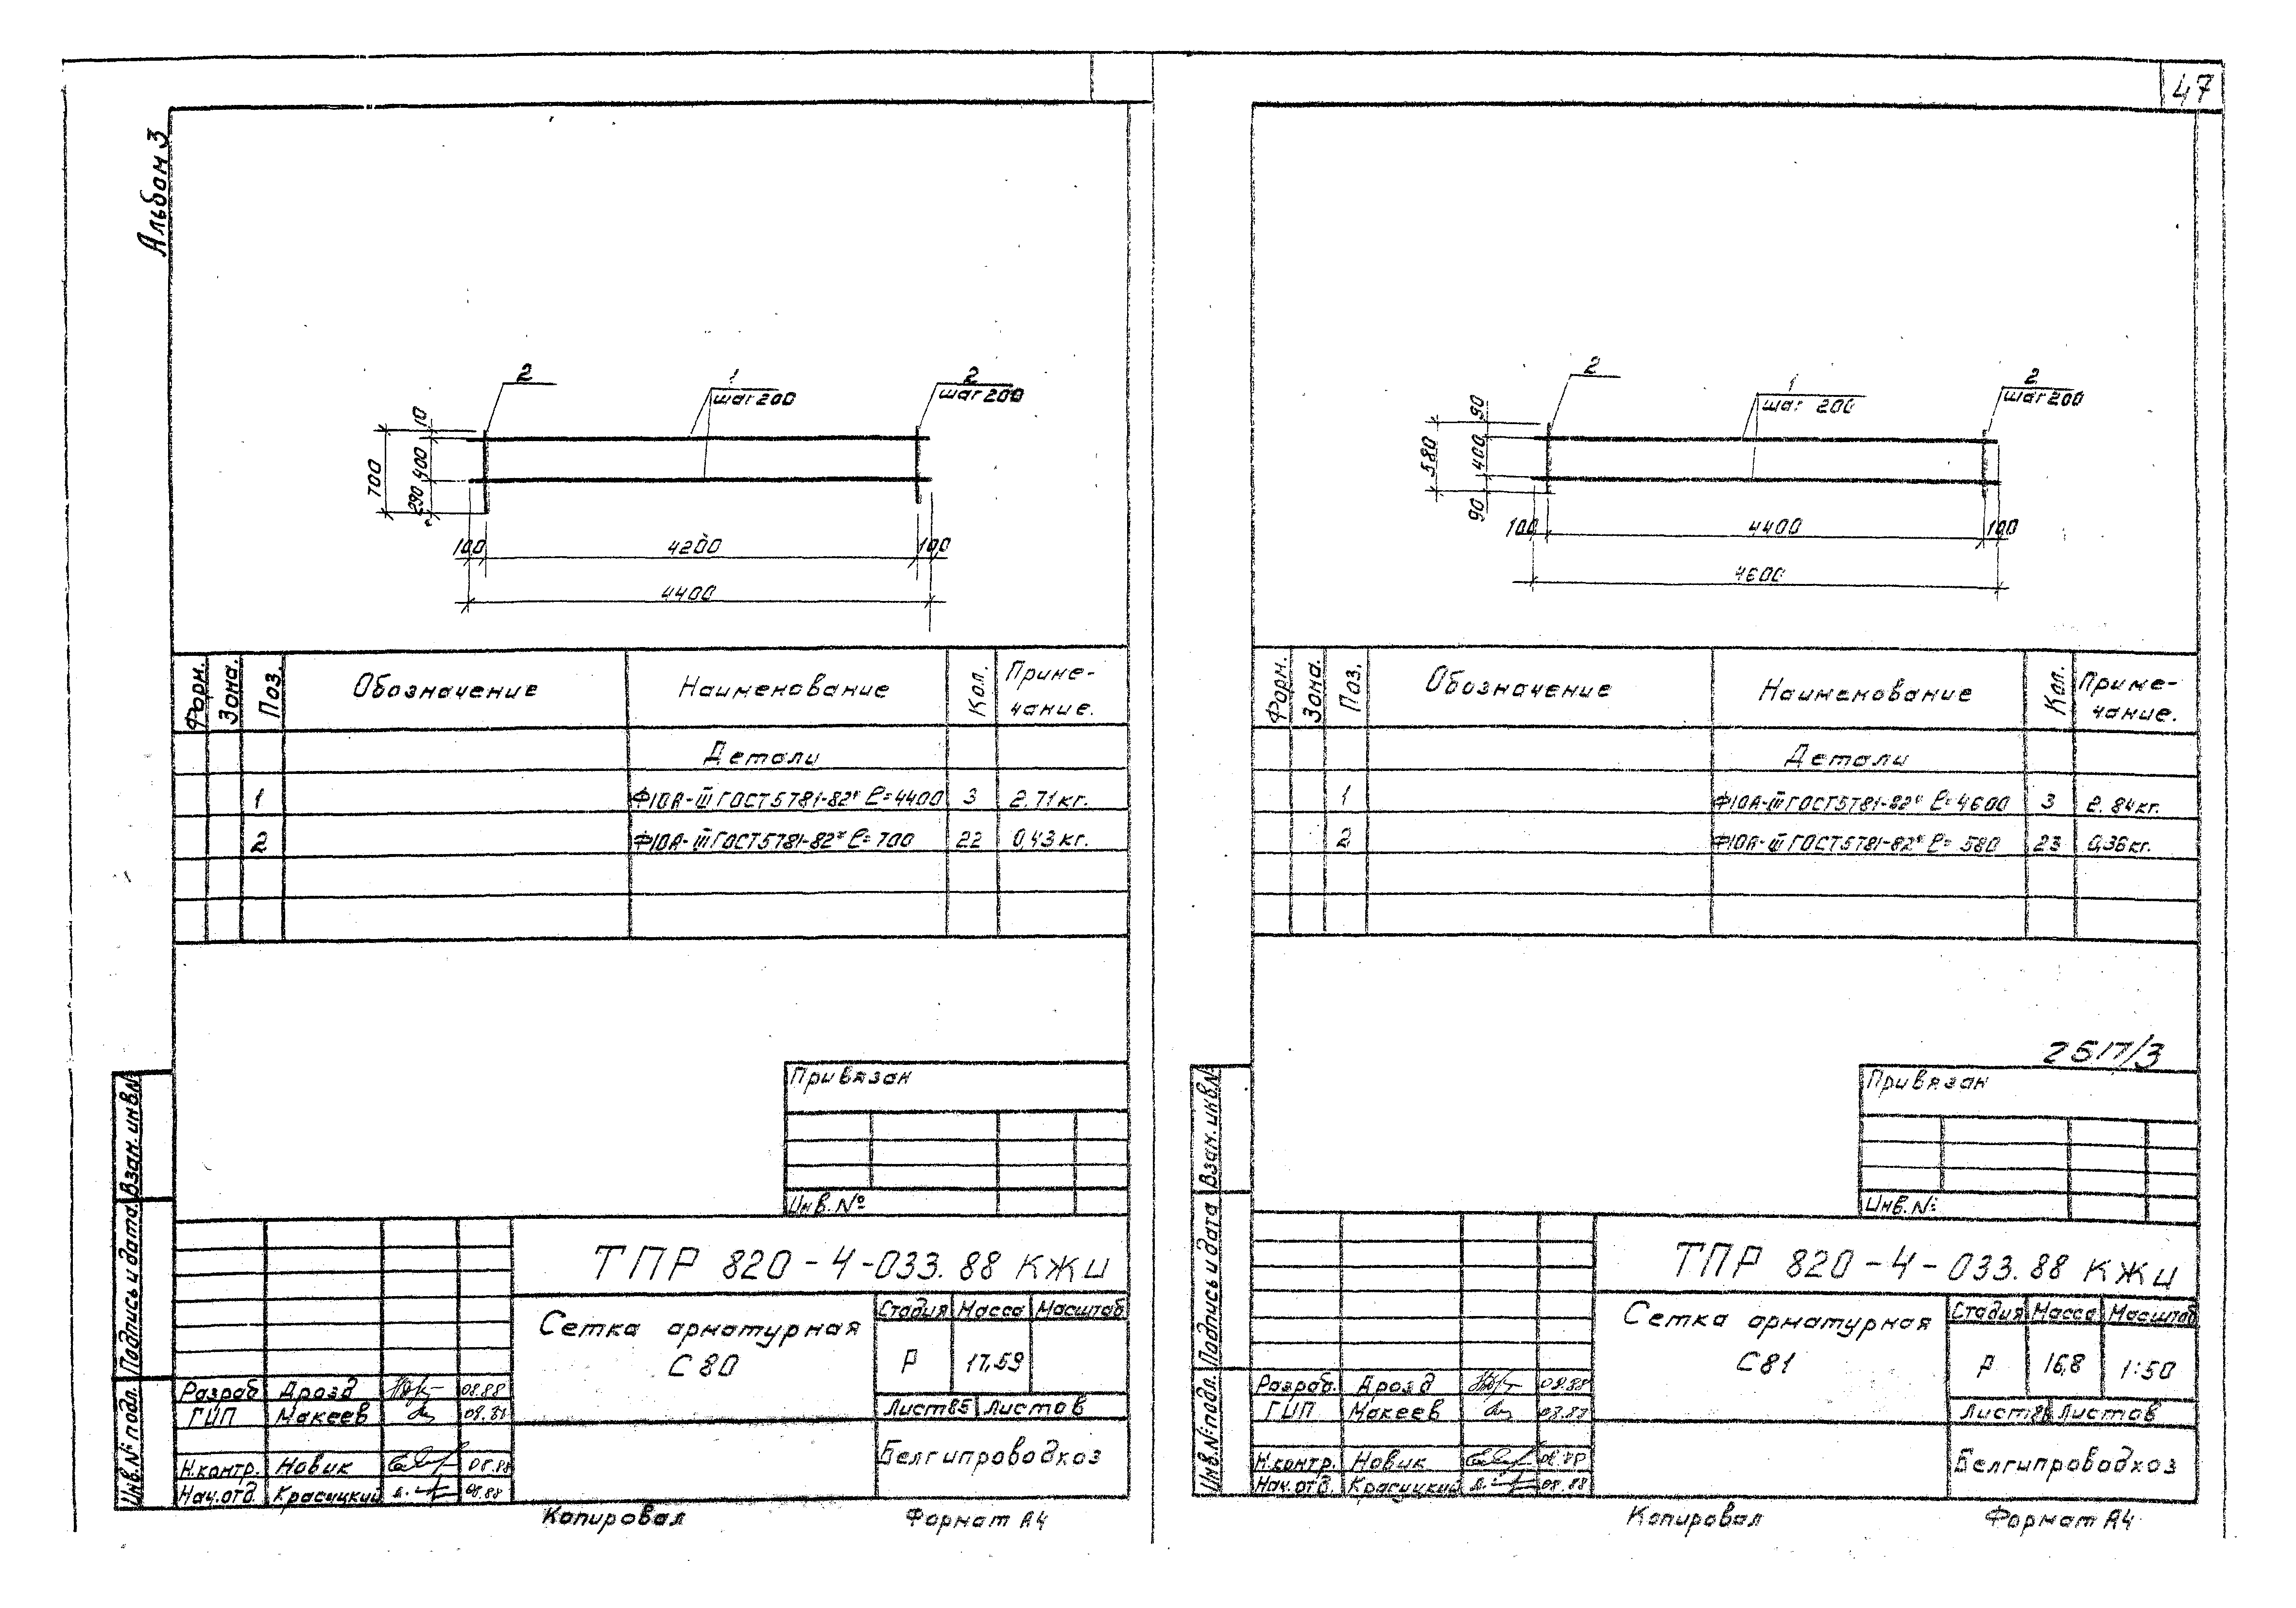 47
Альбом 3
2
1
шаг 200
2
шаг 200
10
400
290
700
100
4200
100
4400
Форм.
Зона.
Поз.
Обозначение
Наименование
Кол.
Приме-
чание.
Детали
1 Ф10А-III ГОСТ 5781-82* ℓ=4400 3 2.71кг.
2 Ф10А-III ГОСТ 5781-82* ℓ=700 22 0,43кг.
Привязан
Инв. №
ТПР 820-4-033.88 КЖИ
Сетка арматурная
С 80
Стадия Масса Масштаб
Р 17,59
Лист 85 Листов
Белгипроводхоз
Разраб. Дрозд 08.88
ГИП Макеев
Н.контр. Новик 08.88
Нач.отд. Красицкий 08.88
Копировал
Формат А4
Взам. инв.№
Подпись и дата
Инв.№ подл.
2
1
шаг 200
2
шаг 200
90
400
90
580
100
4400
100
4600
Форм.
Зона.
Поз.
Обозначение
Наименование
Кол.
Приме-
чание.
Детали
1 Ф10А-III ГОСТ 5781-82* ℓ=4600 3 2.84кг.
2 Ф10А-III ГОСТ 5781-82* ℓ=580 23 0,36кг.
2517/3
Привязан
Инв. №
ТПР 820-4-033.88 КЖИ
Сетка арматурная
С 81
Стадия Масса Масштаб
Р 16,8 1:50
Лист 86 Листов
Белгипроводхоз
Разраб. Дрозд 08.88
ГИП Макеев
Н.контр. Новик
Нач.отд. Красицкий 08.88
Копировал
Формат А4
Взам. инв.№
Подпись и дата
Инв.№ подл.